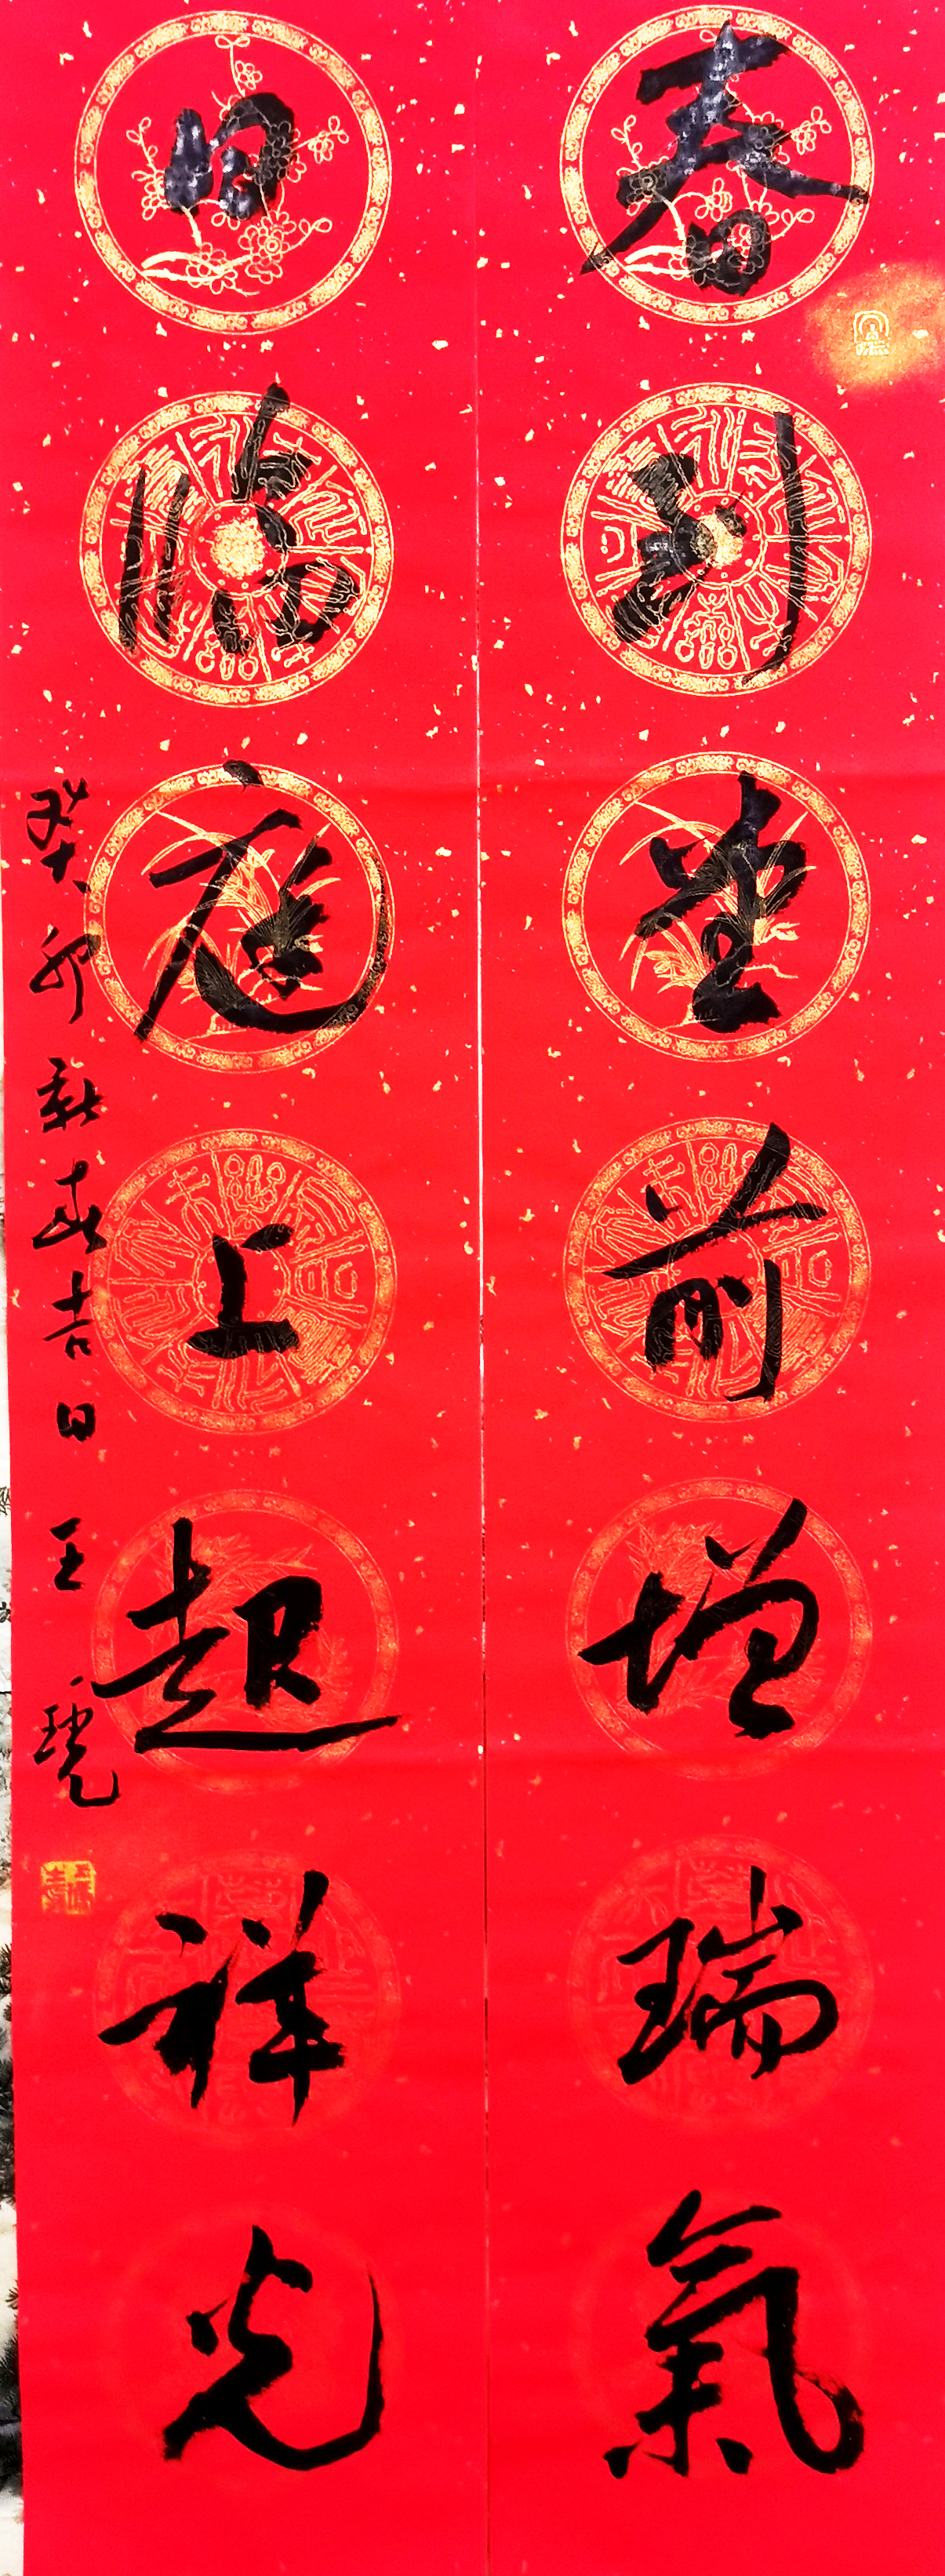 春到堂前增瑞氣
日臨庭上起祥光
癸卯新春吉日 王琥